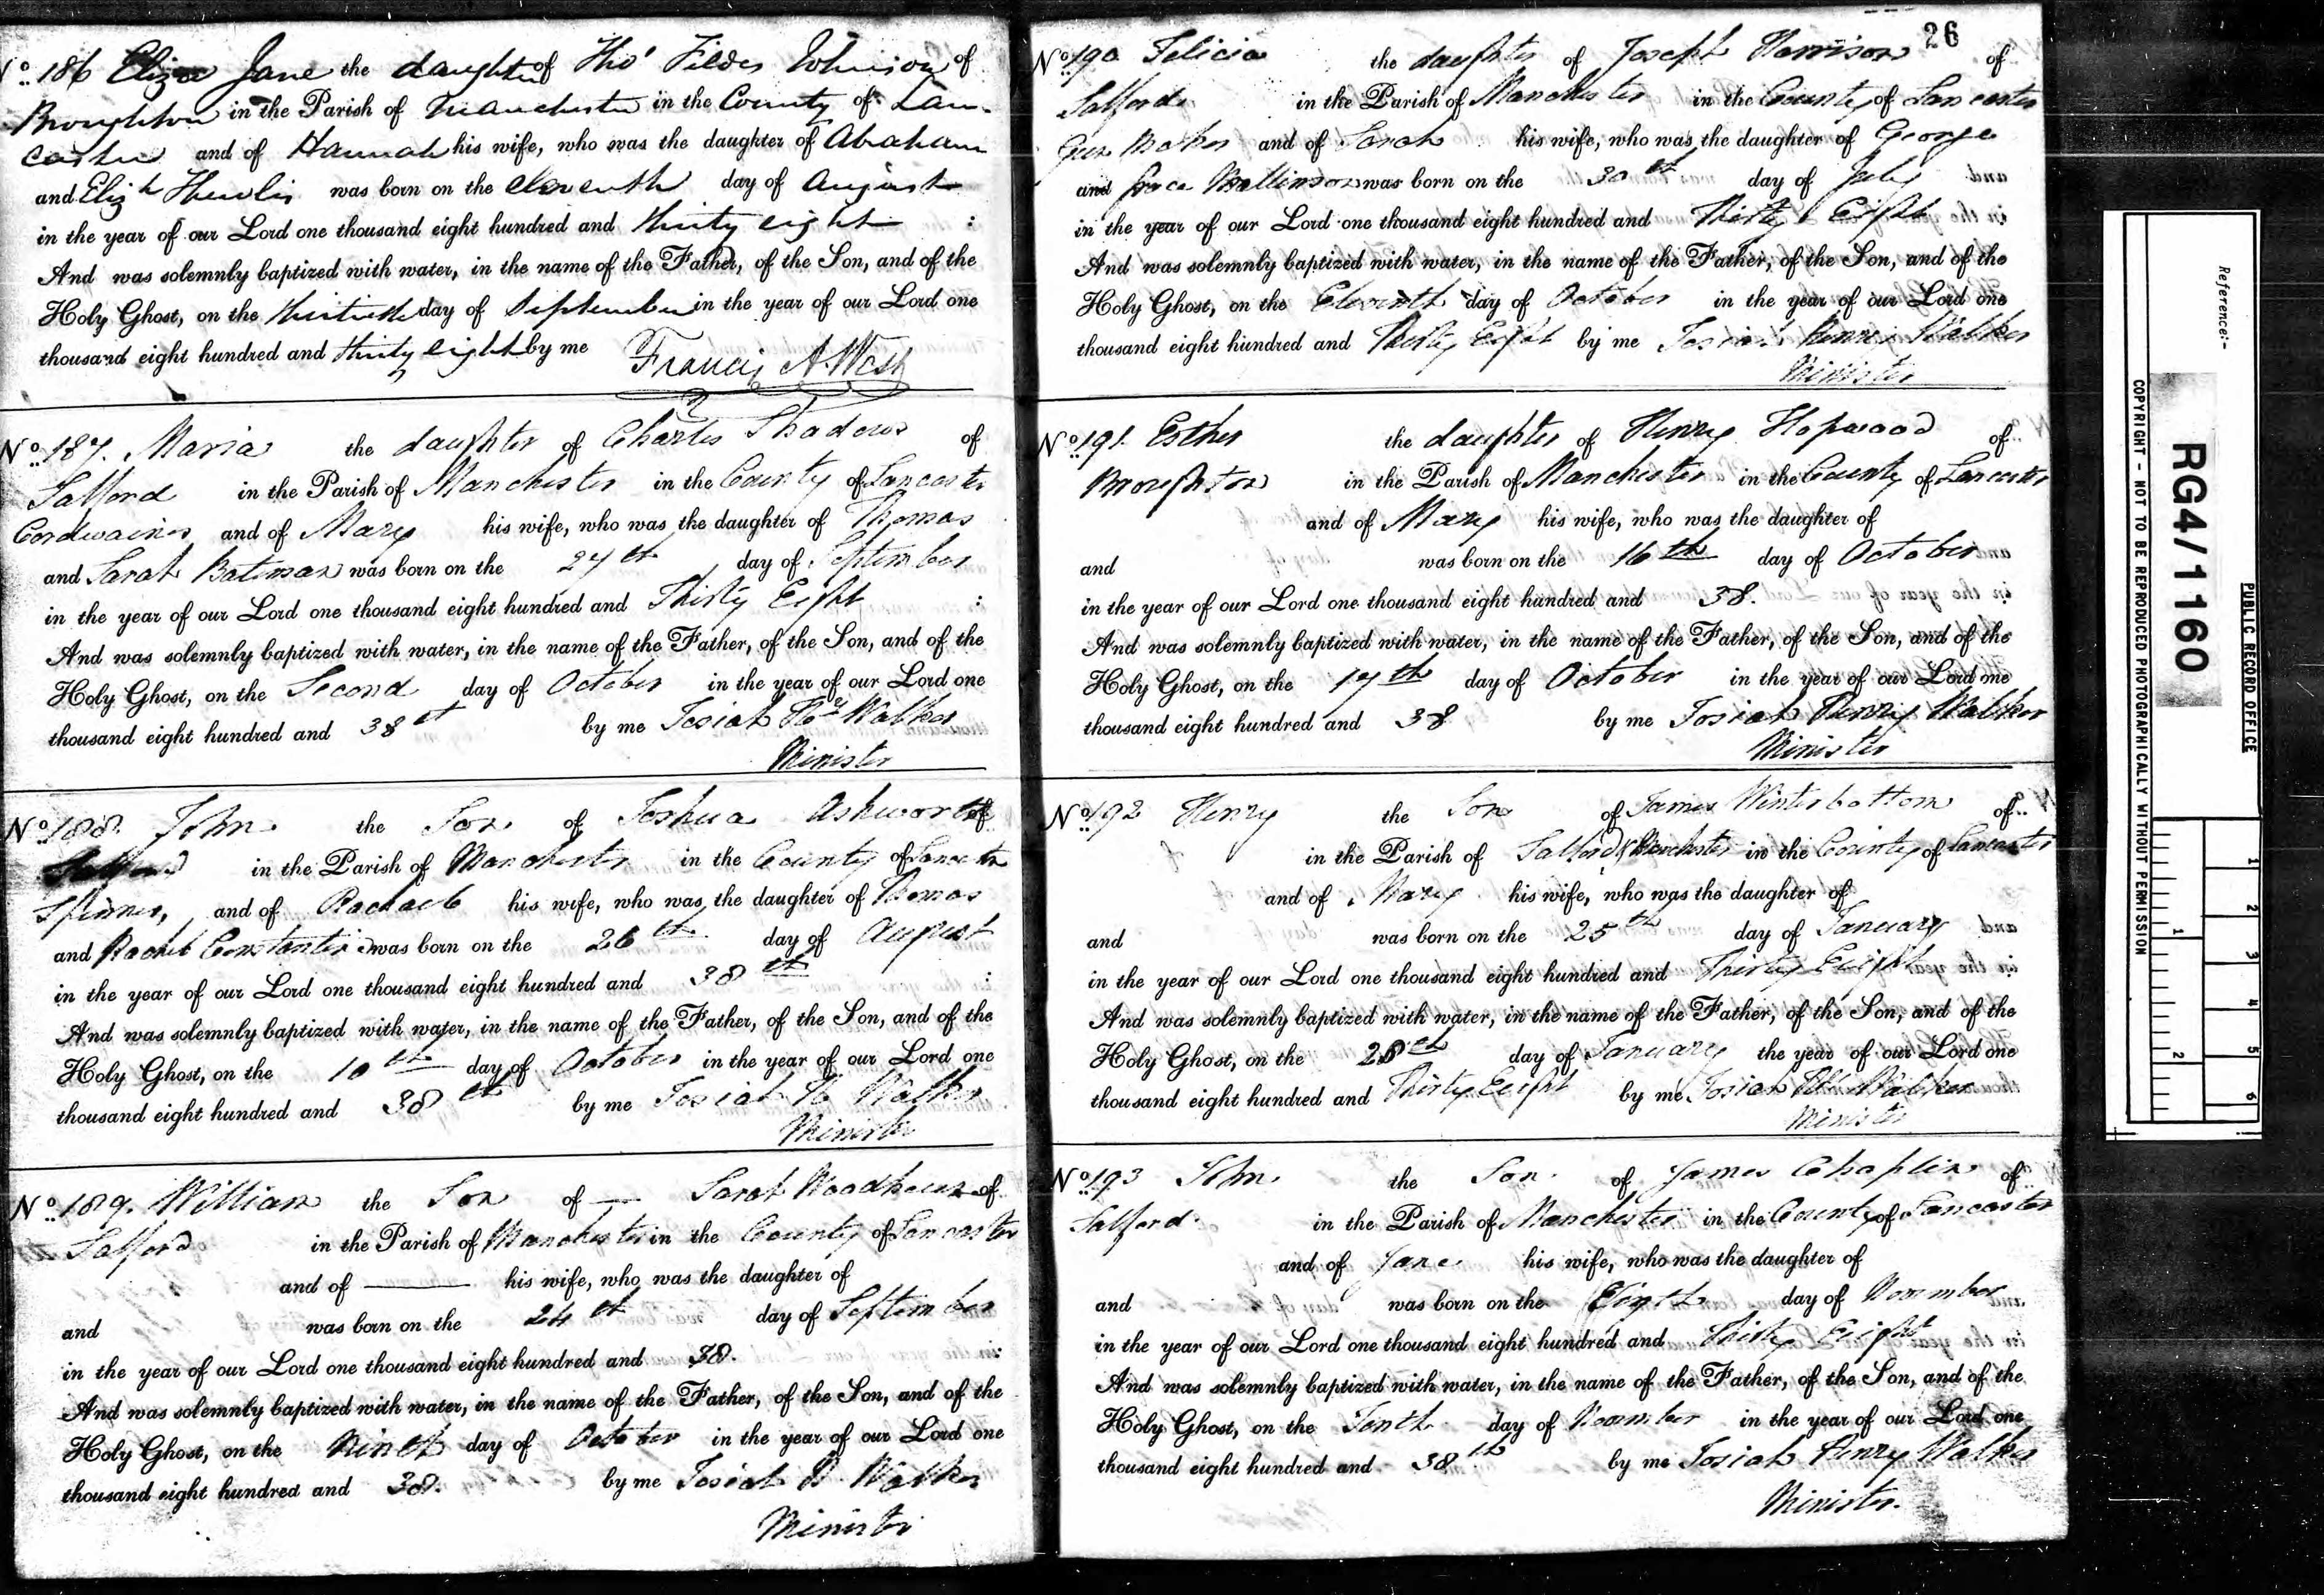 No. 186 Eliza Jane the daughter of Thos Fildes Johnson of
Broughton in the Parish of Manchester in the County of Lan-
caster and of Hannah his wife, who was the daughter of Abraham
and Elizh was born on the eleventh day of August
in the year of our Lord one thousand eight hundred and thirty eight :
And was solemnly baptized with water, in the name of the Father, of the Son, and of the
Holy Ghost, on the thirtieth day of September in the year of our Lord one
thousand eight hundred and thirty eight by me Francis A. West
No. 187. Maria the daughter of Charles Shadows of
Salford in the Parish of Manchester in the County of Lancaster
Cordwainer and of Mary his wife, who was the daughter of Thomas
and Sarah Bateman was born on the 27th day of September
in the year of our Lord one thousand eight hundred and Thirty Eight :
And was solemnly baptized with water, in the name of the Father, of the Son, and of the
Holy Ghost, on the Second day of October in the year of our Lord one
thousand eight hundred and 38th by me Josiah Hy Walker
Minister
No. 188. John the Son of Joshua Ashworth of
Salford in the Parish of Manchester in the County of Lancaster
Spinner, and of Rachael his wife, who was the daughter of Thomas
and Rachel Constantine was born on the 26th day of August
in the year of our Lord one thousand eight hundred and 38th :
And was solemnly baptized with water, in the name of the Father, of the Son, and of the
Holy Ghost, on the 10th day of October in the year of our Lord one
thousand eight hundred and 38th by me Josiah H Walker
Minister
No. 189. William the Son of — Sarah Woodhouse of
Salford in the Parish of Manchester in the County of Lancaster
and of — his wife, who was the daughter of
and was born on the 24th day of September
in the year of our Lord one thousand eight hundred and 38. :
And was solemnly baptized with water, in the name of the Father, of the Son, and of the
Holy Ghost, on the Ninth day of October in the year of our Lord one
thousand eight hundred and 38. by me Josiah H Walker
Minister
26
No. 190 Felicia the daughter of Joseph Harrison of
Salford in the Parish of Manchester in the County of Lancaster
Gun Maker and of Sarah his wife, who was the daughter of George
and Grace Mallinson was born on the 30th day of July
in the year of our Lord one thousand eight hundred and Thirty Eight
And was solemnly baptized with water, in the name of the Father, of the Son, and of the
Holy Ghost, on the Eleventh day of October in the year of our Lord one
thousand eight hundred and Thirty Eight by me Josiah Henry Walker
Minister
No. 191. Esther the daughter of Henry Hopwood of
Broughton in the Parish of Manchester in the County of Lancaster
and of Mary his wife, who was the daughter of
and was born on the 16th day of October
in the year of our Lord one thousand eight hundred and 38.
And was solemnly baptized with water, in the name of the Father, of the Son, and of the
Holy Ghost, on the 17th day of October in the year of our Lord one
thousand eight hundred and 38 by me Josiah Henry Walker
Minister
No. 192 Henry the Son of James Winterbottom of
in the Parish of Salford Manchester in the County of Lancaster
and of Mary his wife, who was the daughter of
and was born on the 25th day of January
in the year of our Lord one thousand eight hundred and Thirty Eight
And was solemnly baptized with water, in the name of the Father, of the Son, and of the
Holy Ghost, on the 28th day of January the year of our Lord one
thousand eight hundred and Thirty Eight by me Josiah Walker
Minister
No. 193 John the Son of James Chaplin of
Salford in the Parish of Manchester in the County of Lancaster
and of Jane his wife, who was the daughter of
and was born on the Eigth day of November
in the year of our Lord one thousand eight hundred and Thirty Eight
And was solemnly baptized with water, in the name of the Father, of the Son, and of the
Holy Ghost, on the Tenth day of November in the year of our Lord one
thousand eight hundred and 38th by me Josiah Henry Walker
Minister.
PUBLIC RECORD OFFICE
Reference:-
RG4/1160
COPYRIGHT - NOT TO BE REPRODUCED PHOTOGRAPHICALLY WITHOUT PERMISSION
1 2 3 4 5 6
1 2